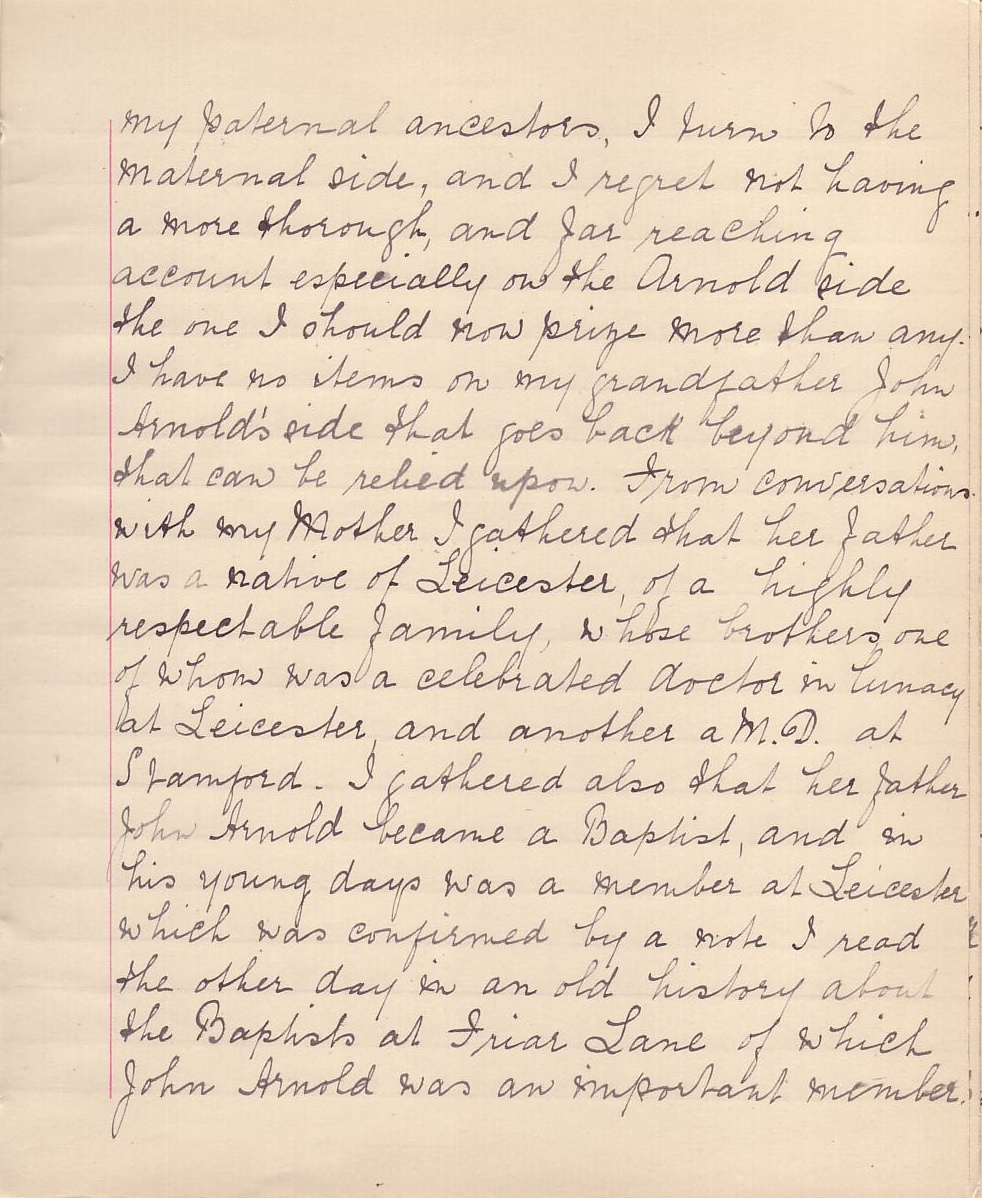 my paternal ancestors, I turn to the
maternal side, and I regret not having
a more thorough, and far reaching
account especially on the Arnold side
the one I should now prize more than any.
I have no items on my grandfather John
Arnold's side that goes back beyond him,
that can be relied upon. From conversations
with my Mother I gathered that her father
was a native of Leicester, of a highly
respectable family, whose brothers, one
of whom was a celebrated doctor in lunacy
at Leicester, and another a M.D. at
Stamford. I gathered also that her father
John Arnold became a Baptist, and in
his young days was a member at Leicester
which was confirmed by a note I read
the other day in an old history about
the Baptists at Friar Lane of which
John Arnold was an important member.